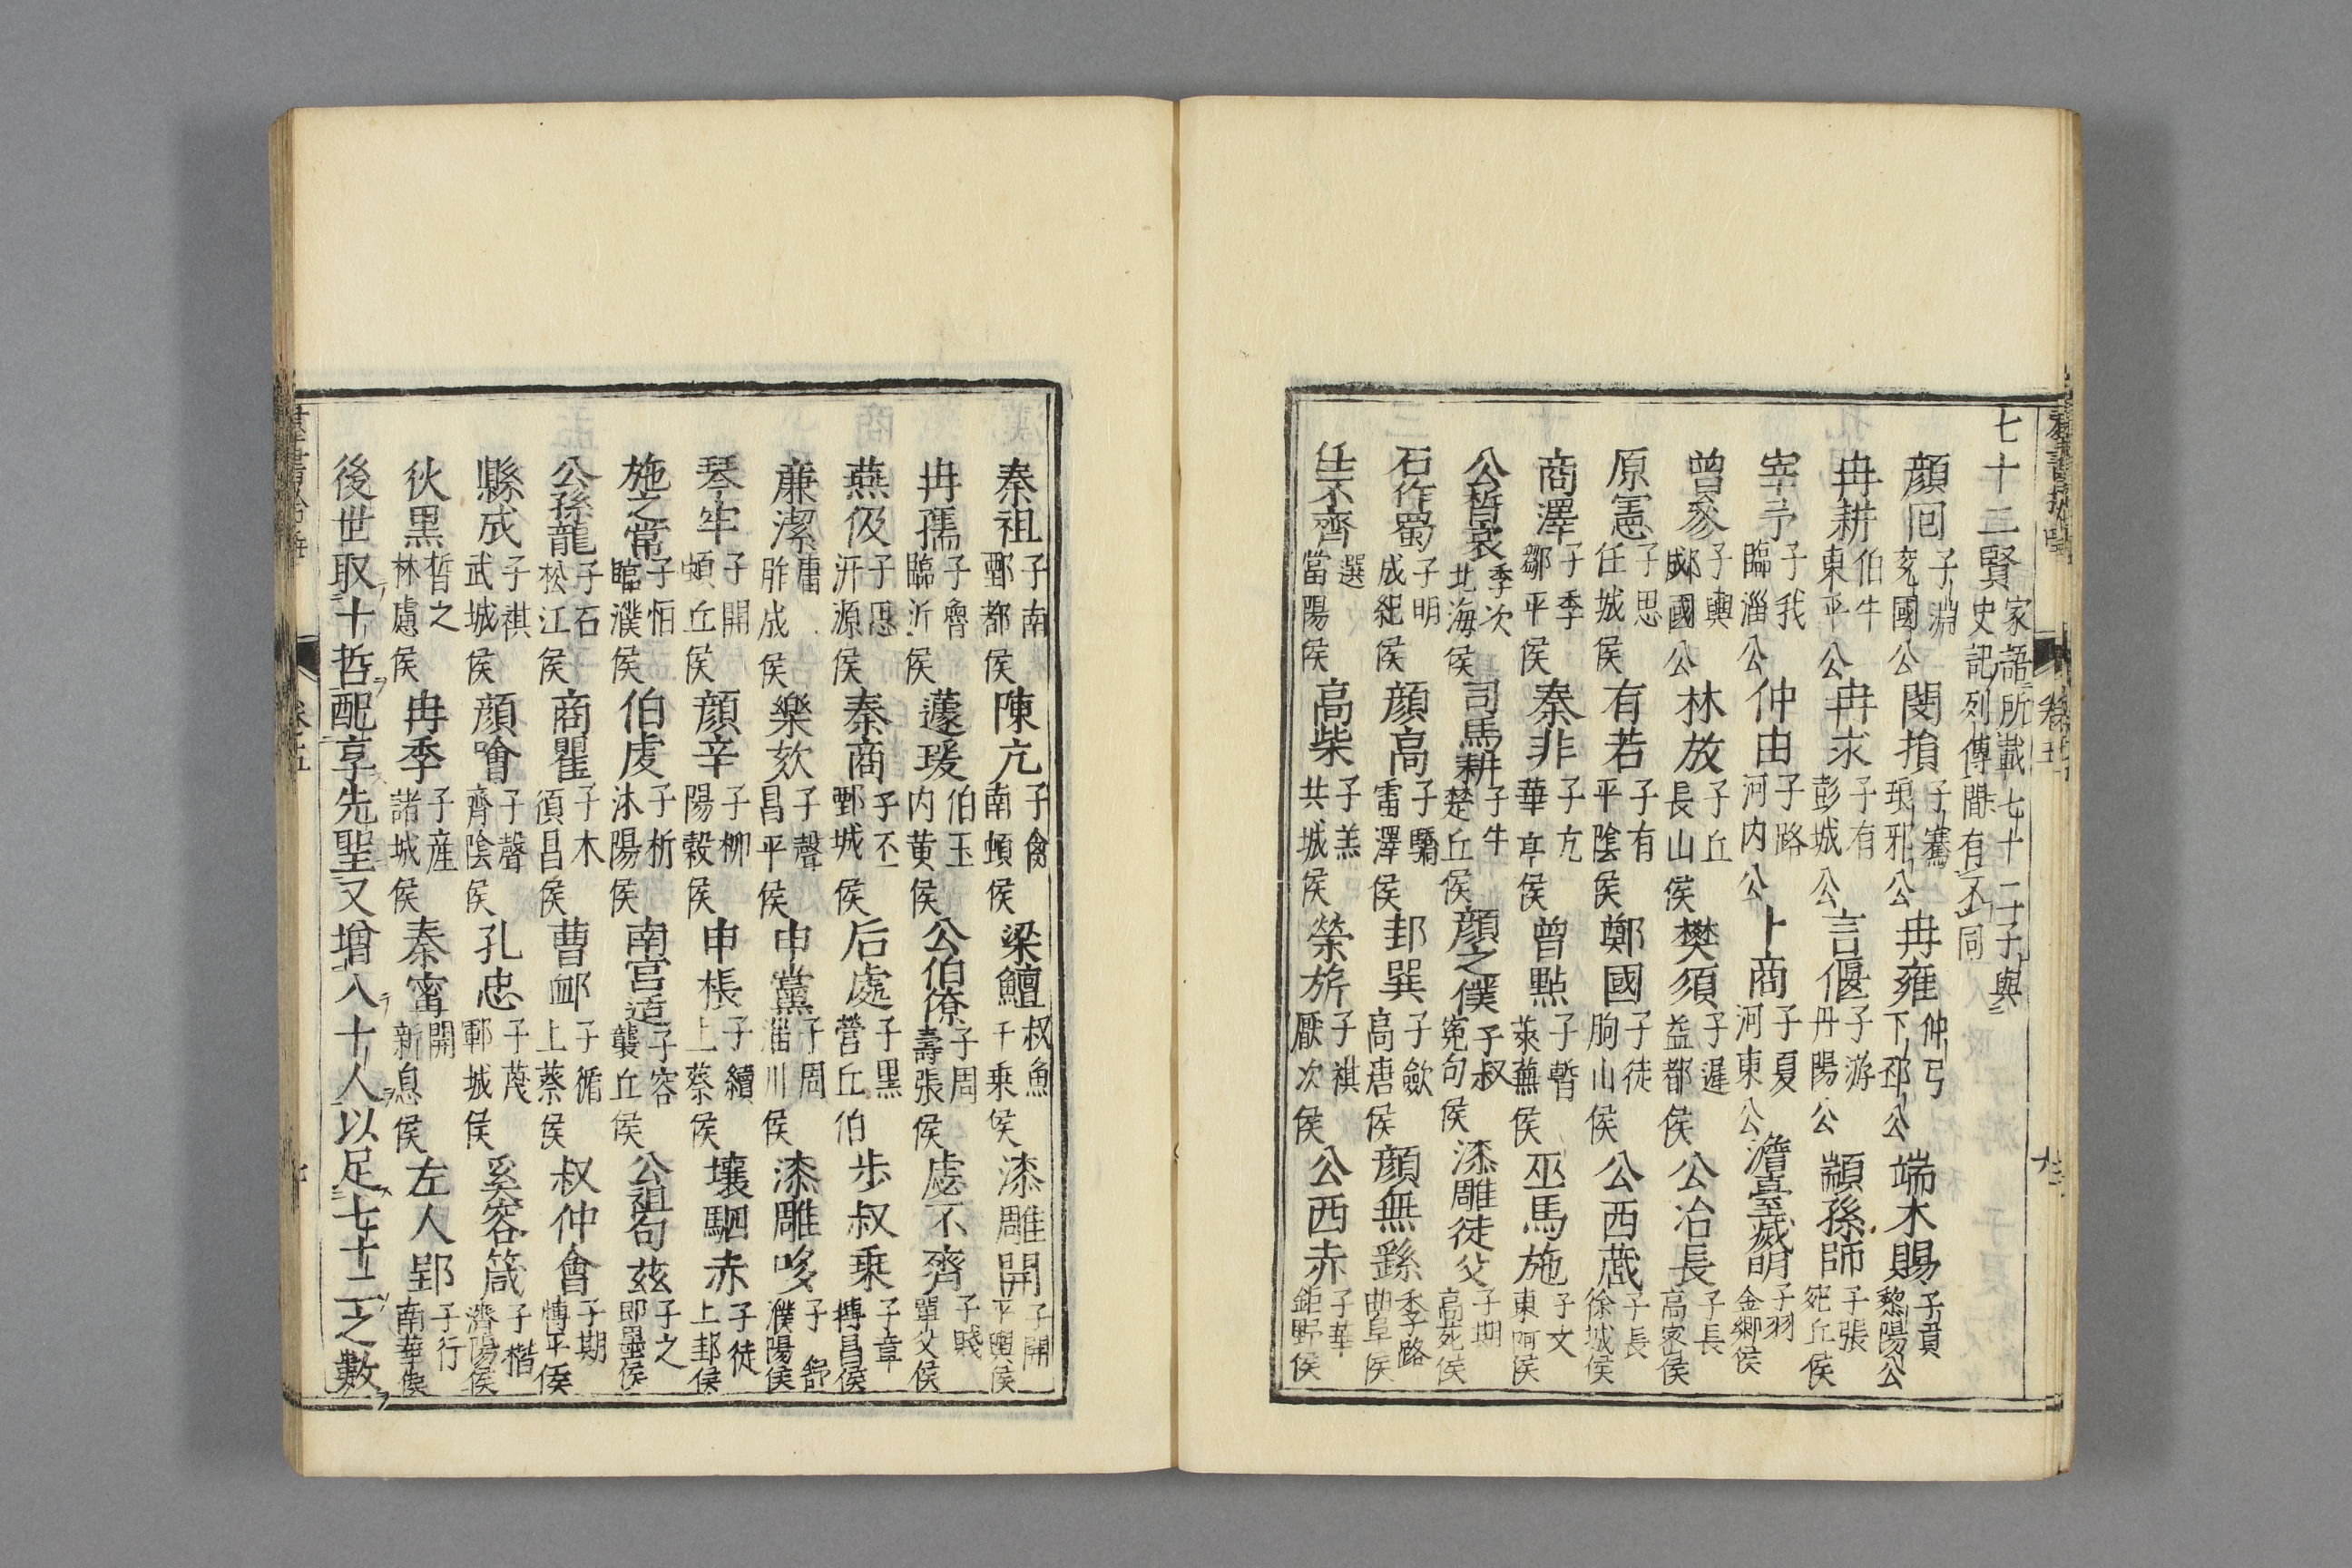 七十二賢 家語所載七十二子與史記列傳間有不同
顔回 子淵 兖國公 閔損 子騫 琅邪公 冉雍 仲弓 下邳公 端木賜 子貢 黎陽公
冉耕 伯牛 東平公 冉求 子有 彭城公 言偃 子游 丹陽公 顓孫師 子張 宛丘侯
宰予 子我 臨淄公 仲由 子路 河内公 卜商 子夏 河東公 澹臺滅明 子羽 金郷侯
曾參 子輿 郕國公 林放 子丘 長山侯 樊須 子遲 益都侯 公冶長 子長 高密侯
原憲 子思 任城侯 有若 子有 平陰侯 鄭國 子徒 朐山侯 公西蒧 子長 徐城侯
商澤 子季 鄒平侯 秦非 子亢 華亭侯 曾點 子晳 萊蕪侯 巫馬施 子文 東阿侯
公晳哀 季次 北海侯 司馬耕 子牛 楚丘侯 顔之僕 子叔 宛句侯 漆雕徒父 子期 高苑侯
石作蜀 子明 成紀侯 顔高 子驕 雷澤侯 邽巽 子歛 高唐侯 顔無繇 季路 曲阜侯
任不齊 選 當陽侯 高柴 子羔 共城侯 榮旂 子祺 厭次侯 公西赤 子華 鉅野侯
秦祖 子南 鄄都侯 陳亢 子禽 南頓侯 梁鱣 叔魚 千乗侯 漆雕開 子開 平輿侯
冉孺 子魯 臨沂侯 蘧瑗 伯玉 内黄侯 公伯僚 子周 壽張侯 虙不齊 子賤 單父侯
燕伋 子思 汧源侯 秦商 子丕 鄄城侯 后處 子黒 營丘伯 歩叔乗 子章 博昌侯
亷潔 庸 胙成侯 樂欬 子聲 昌平侯 申黨 子周 淄川侯 漆雕哆 子 舒 濮陽侯
琴牢 子開 頓丘侯 顔辛 子柳 陽穀侯 申棖 子續 上蔡侯 壤駟赤 子徒 上邽侯
施之常 子恒 臨濮侯 伯虔 子析 沐陽侯 南宫适 子容 龔丘侯 公祖句茲 子之 即墨侯
公孫龍 子石 松江侯 商瞿 子木 須昌侯 曹䘏 子循 上蔡侯 叔仲會 子期 博平侯
縣成 子祺 武城侯 顔噲 子聲 齊陰侯 孔忠 子蔑 鄆城侯 奚容箴 子楷 濟陽侯
狄黒 晳之 林慮侯 冉季 子產 諸城侯 秦甯 開 新息侯 左人郢 子行 南華侯
後世取十哲配享先聖又增入十人以足七十二之數